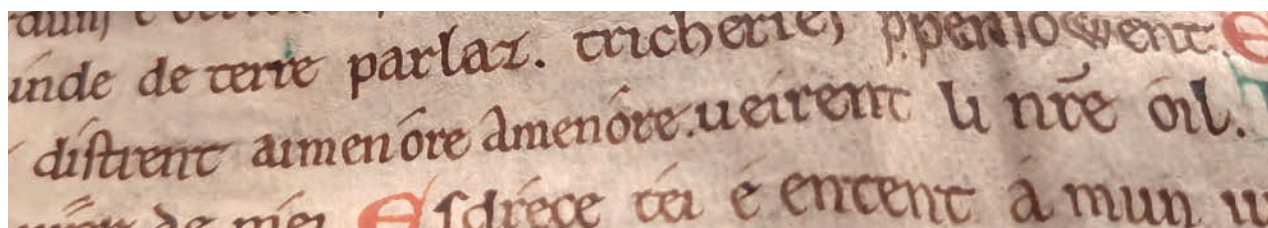 inde de terre parlaz. tricheries ꝑpensowent. E
distrent aimenóre àmenóre. ueirent li nr̃e oil.
de mei Esdréce téi é entent á mun